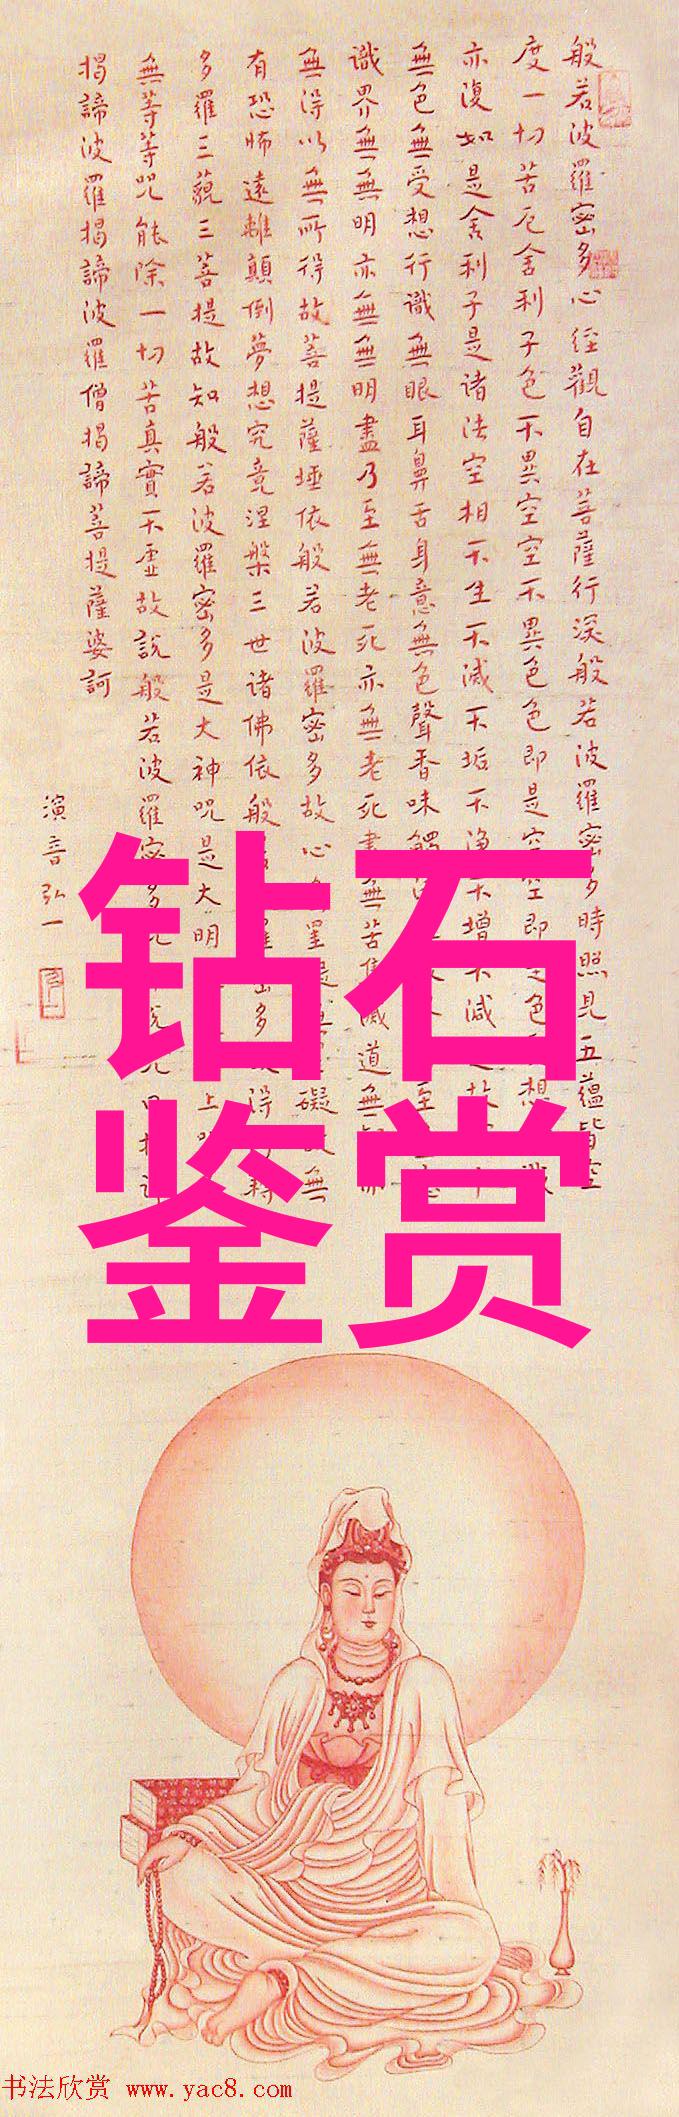 般若波羅密多心經觀自在菩薩行深般若波羅密多時照見五蘊皆空
度一切苦厄舍利子色不異空空不異色色即是空空即是色想
亦復如是舍利子是諸法空相不生不滅不垢不淨不增不減故
無色無受想行識無眼耳鼻舌身意無色聲香味觸至
識界無無明亦無無明盡乃至無老死亦無老死盡無苦集滅道無亦
無得以無所得故菩提薩埵依般若波羅密多故心罣礙故無
有恐怖遠離顛倒夢想究竟涅槃三世諸佛依般羅密多得耨
多羅三藐三菩提故知般若波羅密多是大神咒是大明上咒
無等等咒能除一切苦真實不虛故說般若波羅密多咒說曰揭諦
揭諦波羅揭諦波羅僧揭諦菩提薩婆訶
演音弘一
钻石
鉴赏
书法欣赏 www.yac8.com